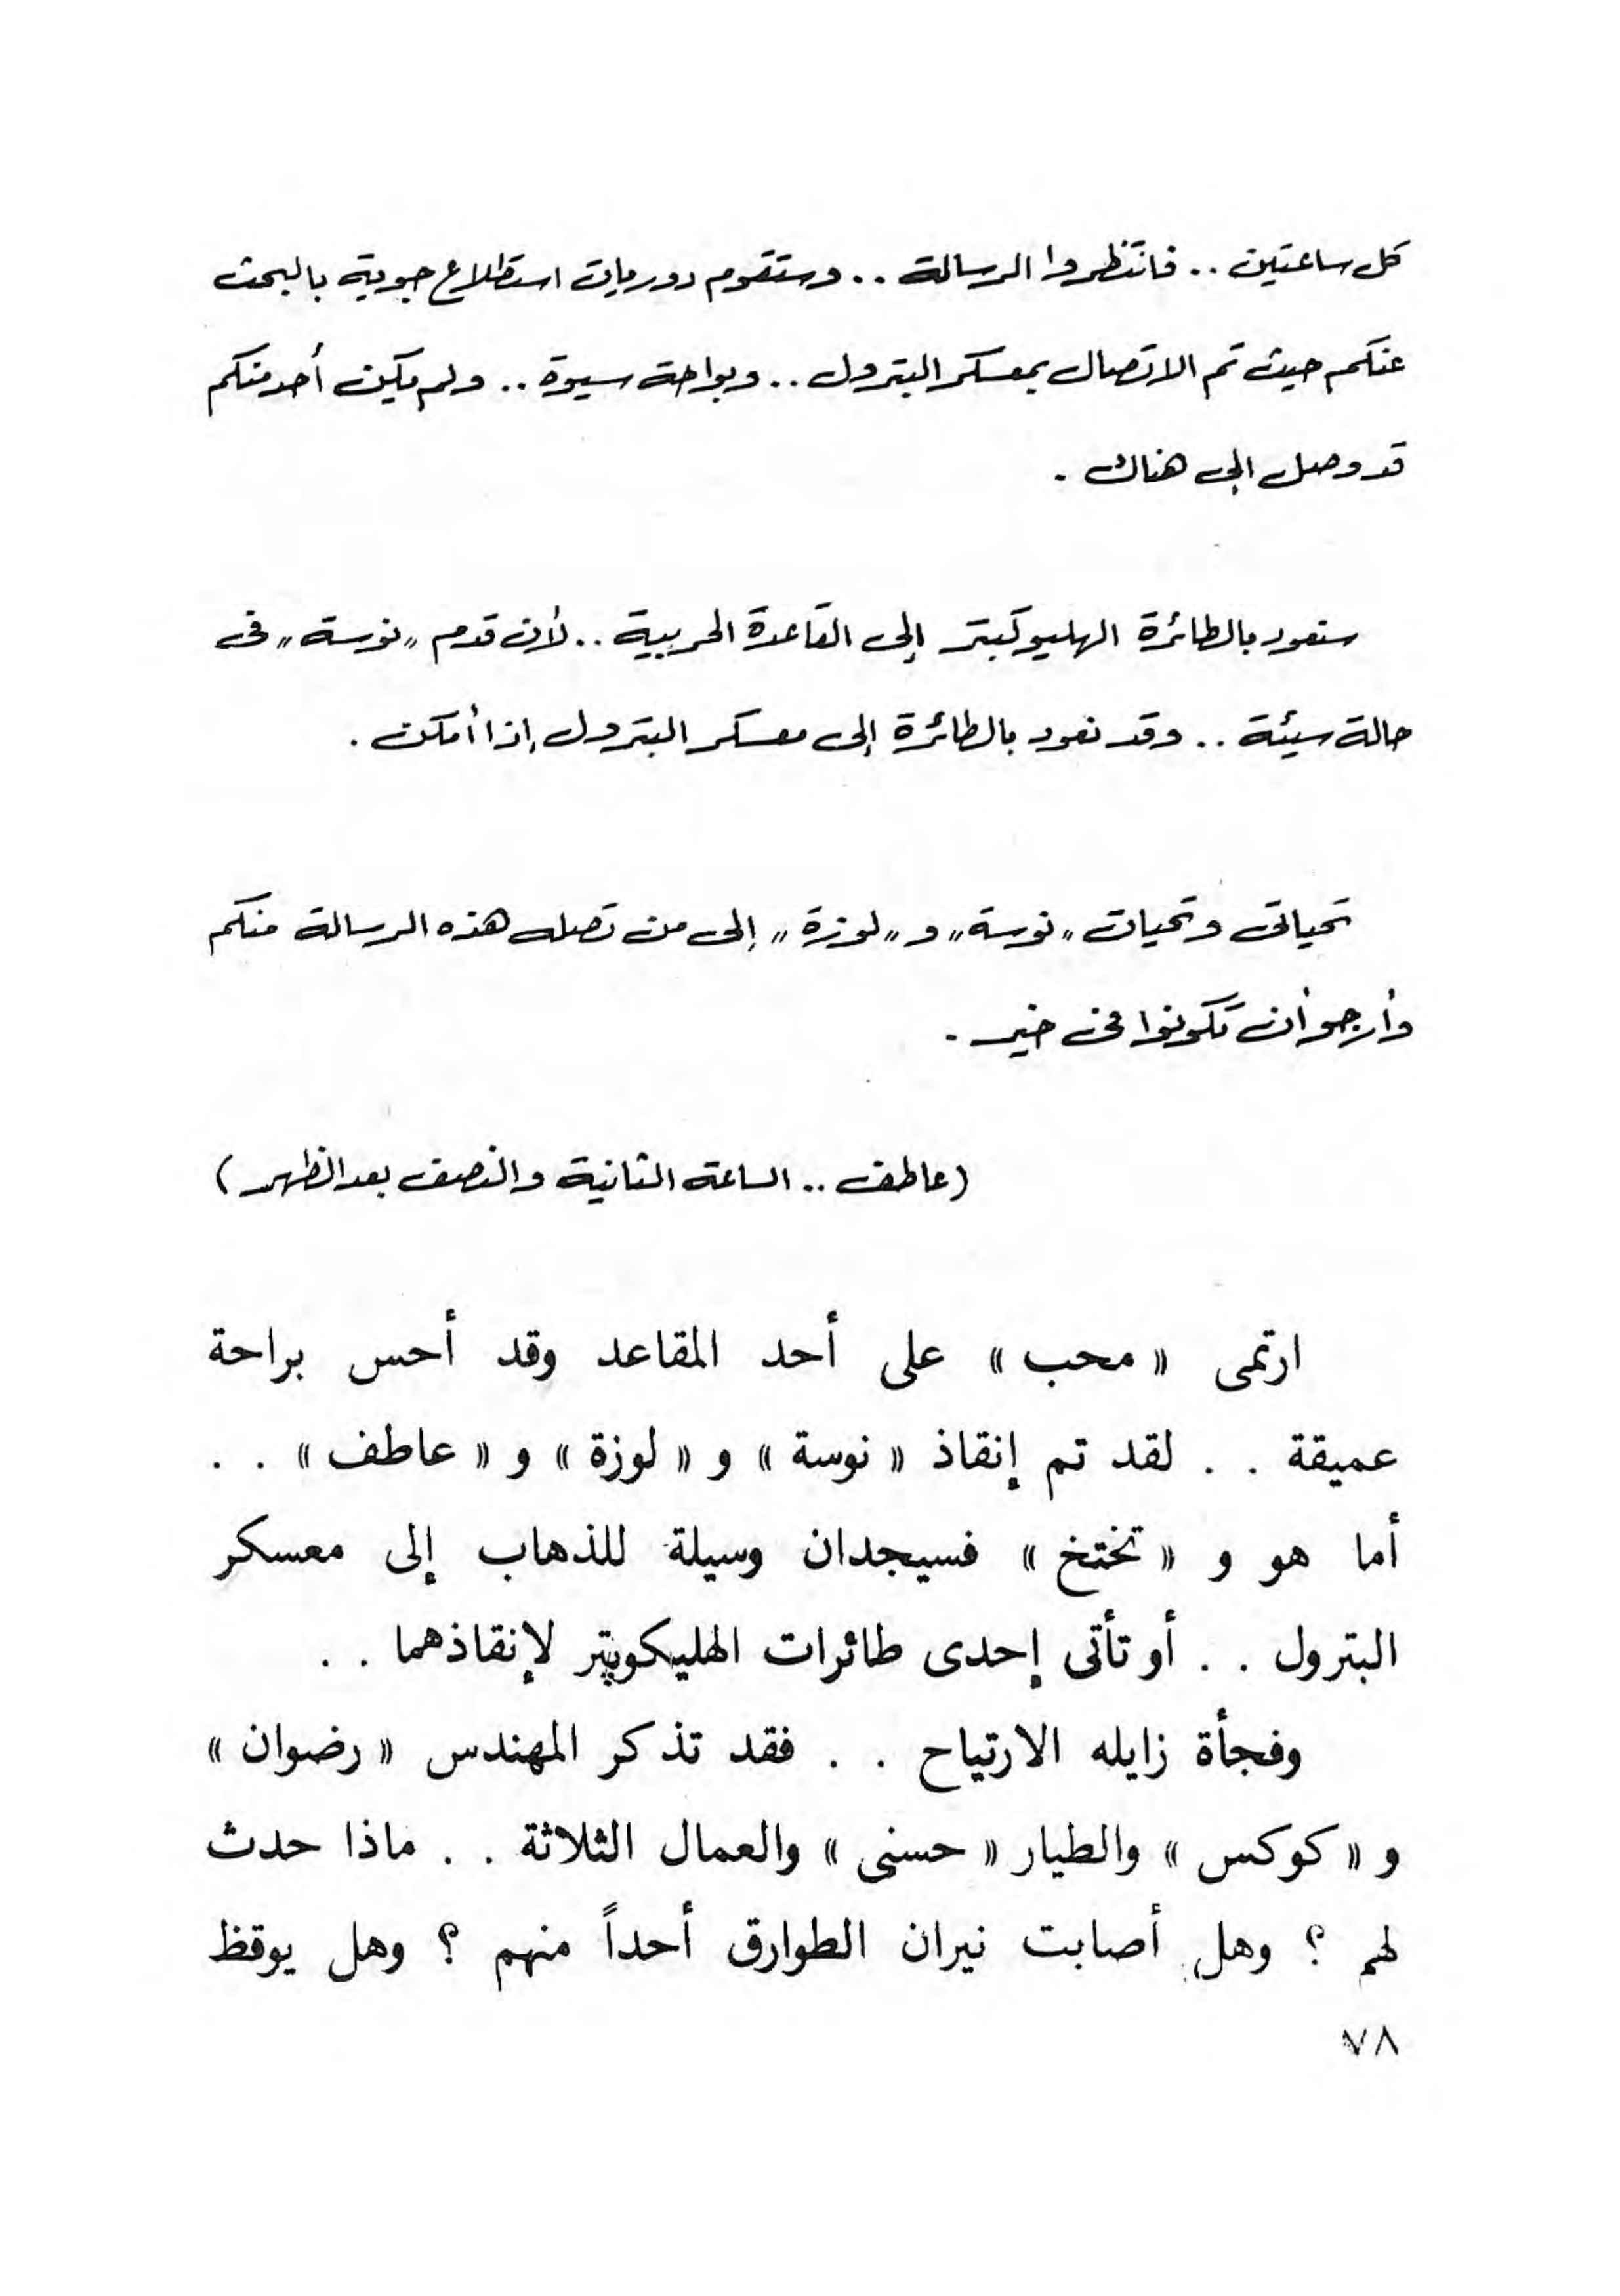 كل ساعتين .. فانتظروا الرسالة .. وستقوم دوريات استطلاع جوية بالبحث
عنكم حيث تم الاتصال بمعسكر البترول .. وبواحة سيوة .. ولم يكن أحد منكم
قد وصل إلى هناك .
سنعود بالطائرة الهليوكبتر إلى القاعدة الحربية .. لأن قدم "نوسة" فى
حالة سيئة .. وقد نعود بالطائرة إلى معسكر البترول إذا أمكن .
تحياتى وتحيات "نوسة" و"لوزة" إلى من تصله هذه الرسالة منكم
وأرجو أن تكونوا فى خير .
(عاطف .. الساعة الثانية والنصف بعد الظهر)
ارتمى « محب » على أحد المقاعد وقد أحس براحة
عميقة . . لقد تم إنقاذ « نوسة » و « لوزة » و « عاطف » . .
أما هو و « تختخ » فسيجدان وسيلة للذهاب إلى معسكر
البترول . . أو تأتى إحدى طائرات الهليكوبتر لإنقاذهما . .
وفجأة زايله الارتياح . . فقد تذكر المهندس « رضوان »
و « كوكس » والطيار « حسنى » والعمال الثلاثة . . ماذا حدث
لهم ؟ وهل أصابت نيران الطوارق أحداً منهم ؟ وهل يوقظ
٧٨